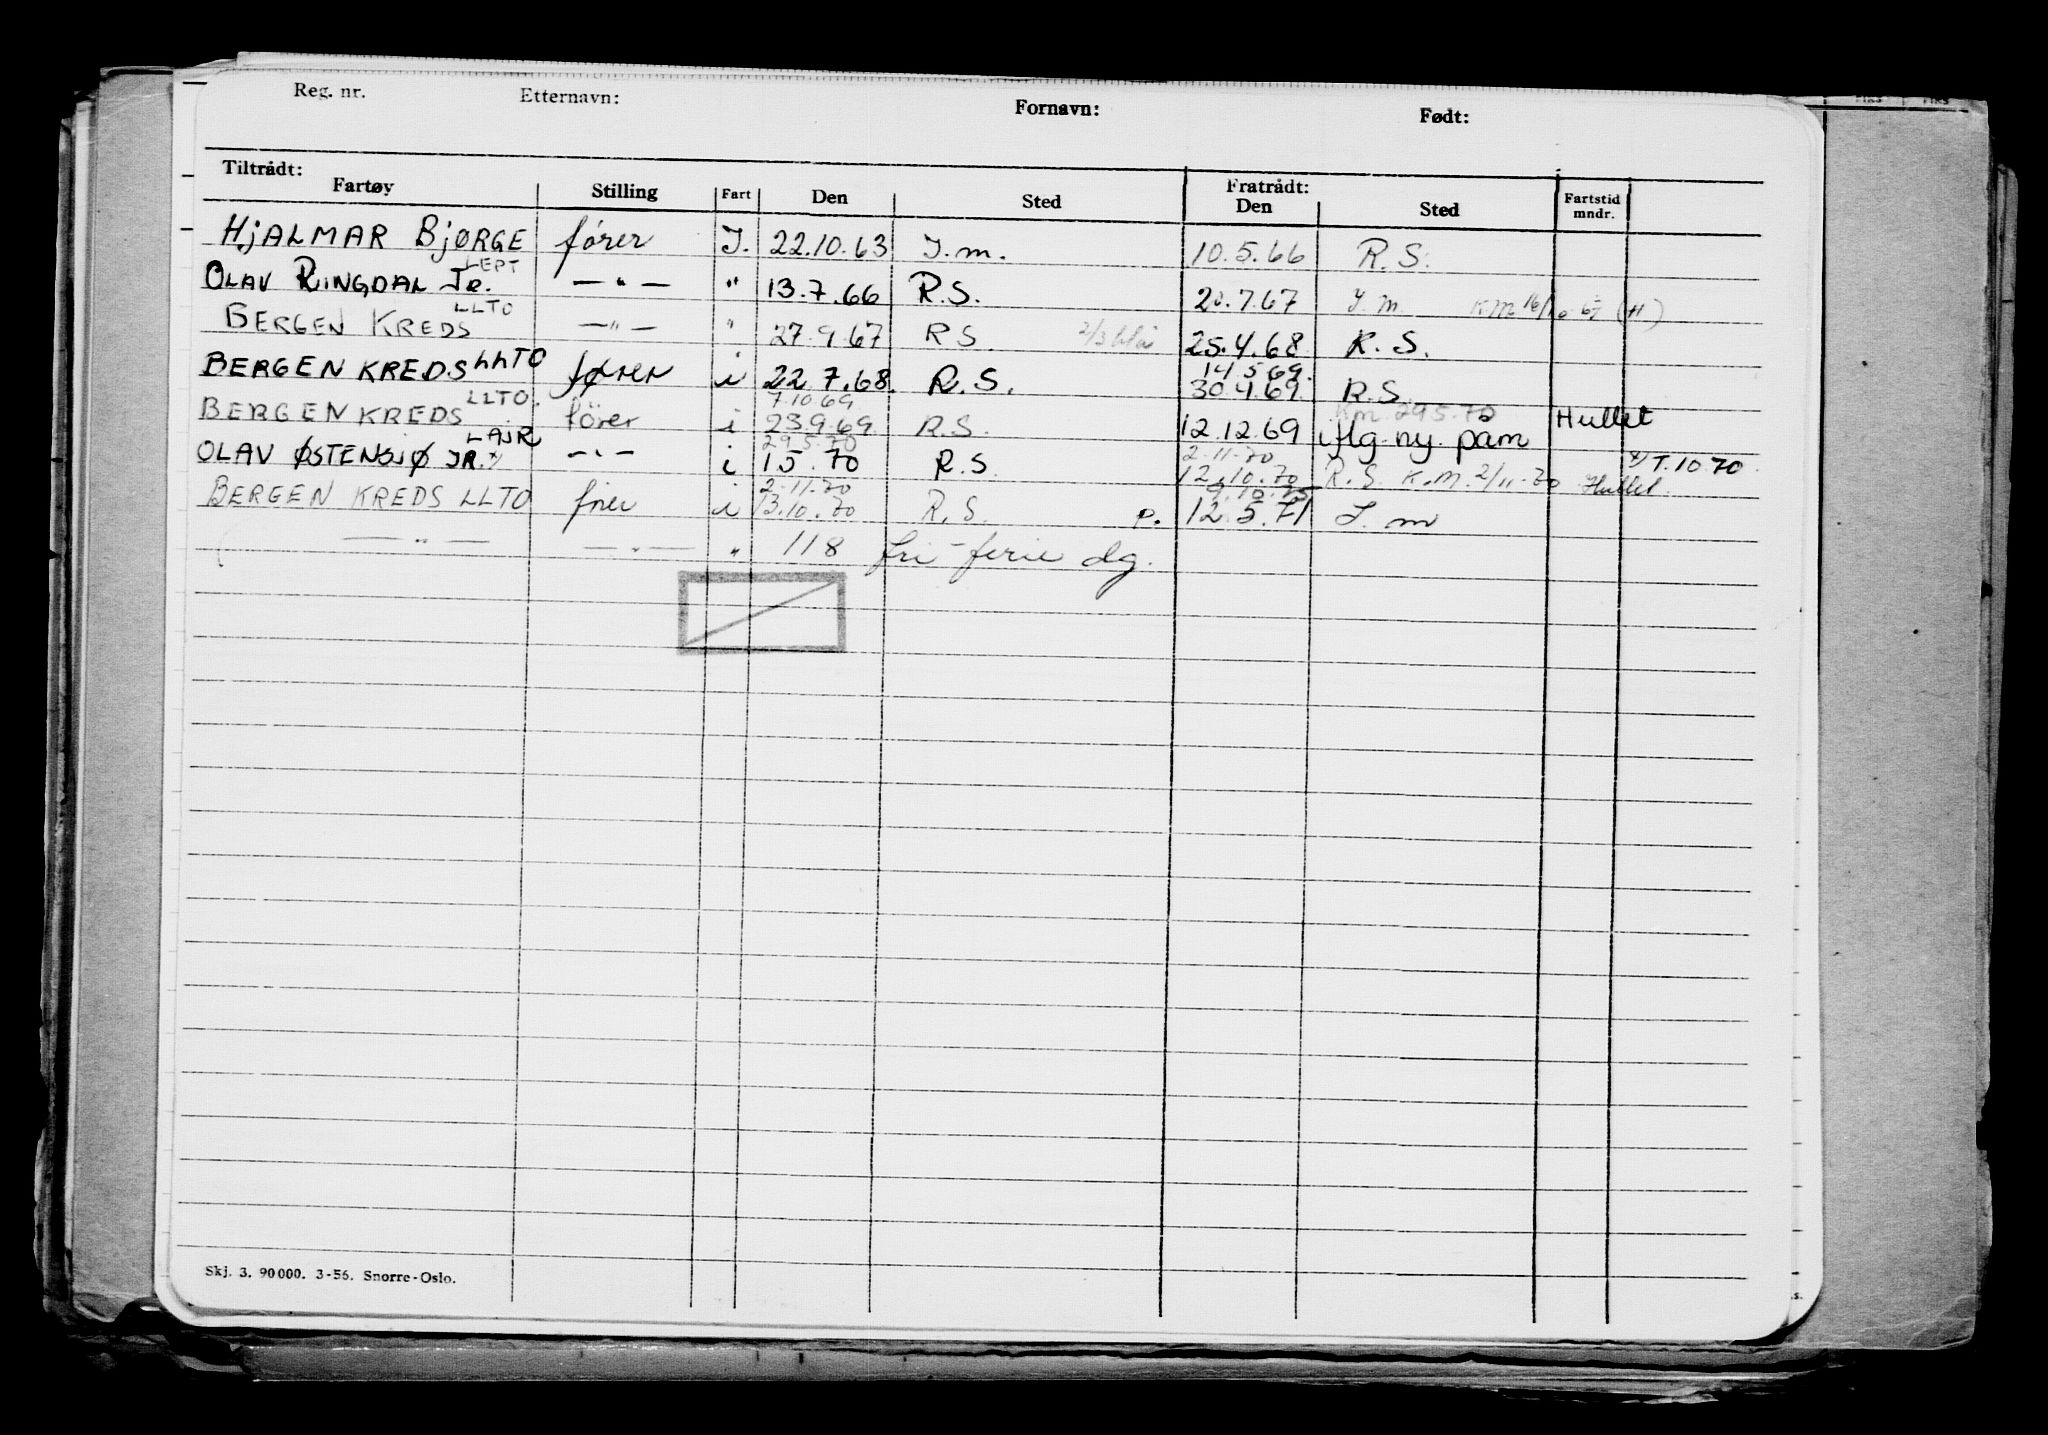 Reg. nr. Etternavn: Fornavn: Født:
Tiltrådt: Fratrådt:
Fartøy Stilling Fart Den Sted Den Sted Fartstid mndr.
HjALMAR BjØRGE fører J. 22.10.63 J.m. 10.5.66 R.S.
LEPT
OLAV RINGDAL JR. — " — " 13.7.66 R.S. 7.67 J.m. K.m.
LLTO
BERGEN KREDS — " — " 27.9.67 R S. 2/3 25.4.68 R.S.
14.5.69.
BERGEN KREDS LLTO fører i 22.7.68. R.S. 30.4.69. R.S.
LLTO. 7.10.69 Km. 29.5.70
BERGEN KREDS fører i 23.9.69. R.S. 12.12.69 iflg. ny. pam Hullet
LAJR 29.5.70 2.11.70
OLAV ØSTENSJØ JR. x) — " — i 1.5.70 R.S. 12.10.70 R.S. K.M. 2/11.70 Hullet. x) T.10 70
2.11.70
BERGEN KREDS LLTO fører i 13.10.70 R.S. p. 12.5.71 J.m
— " — — " — " 118 fri-ferie dg.
Skj. 3. 90000. 3-56. Snorre-Oslo.